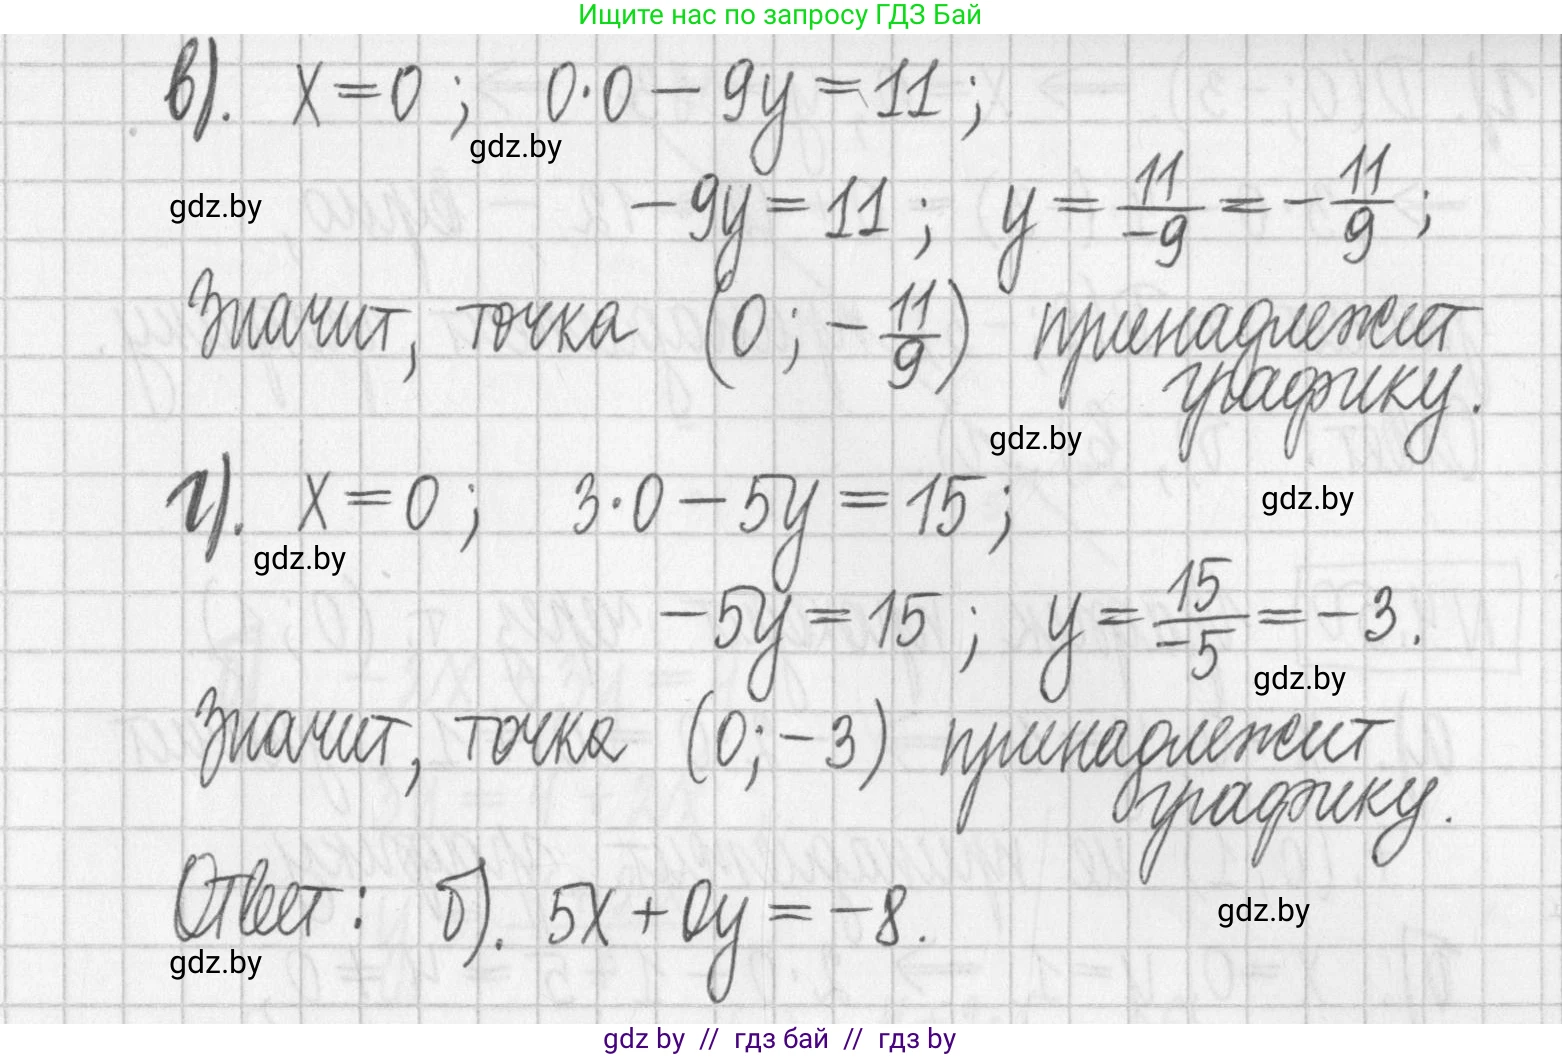 Ищите нас по запросу ГДЗ Бай
в). x = 0 ; 0·0 − 9y = 11 ;
gdz.by
gdz.by
−9y = 11 ; y = 11/−9 = −11/9 ;
Значит, точка (0 ; −11/9) принадлежит
графику.
gdz.by
г). x = 0 ; 3·0 − 5y = 15 ;
gdz.by
gdz.by
−5y = 15 ; y = 15/−5 = −3.
gdz.by
Значит, точка (0; −3) принадлежит
графику.
Ответ: б). 5x + 0y = −8.
gdz.by
gdz.by
gdz by // гдз бай // гдз by